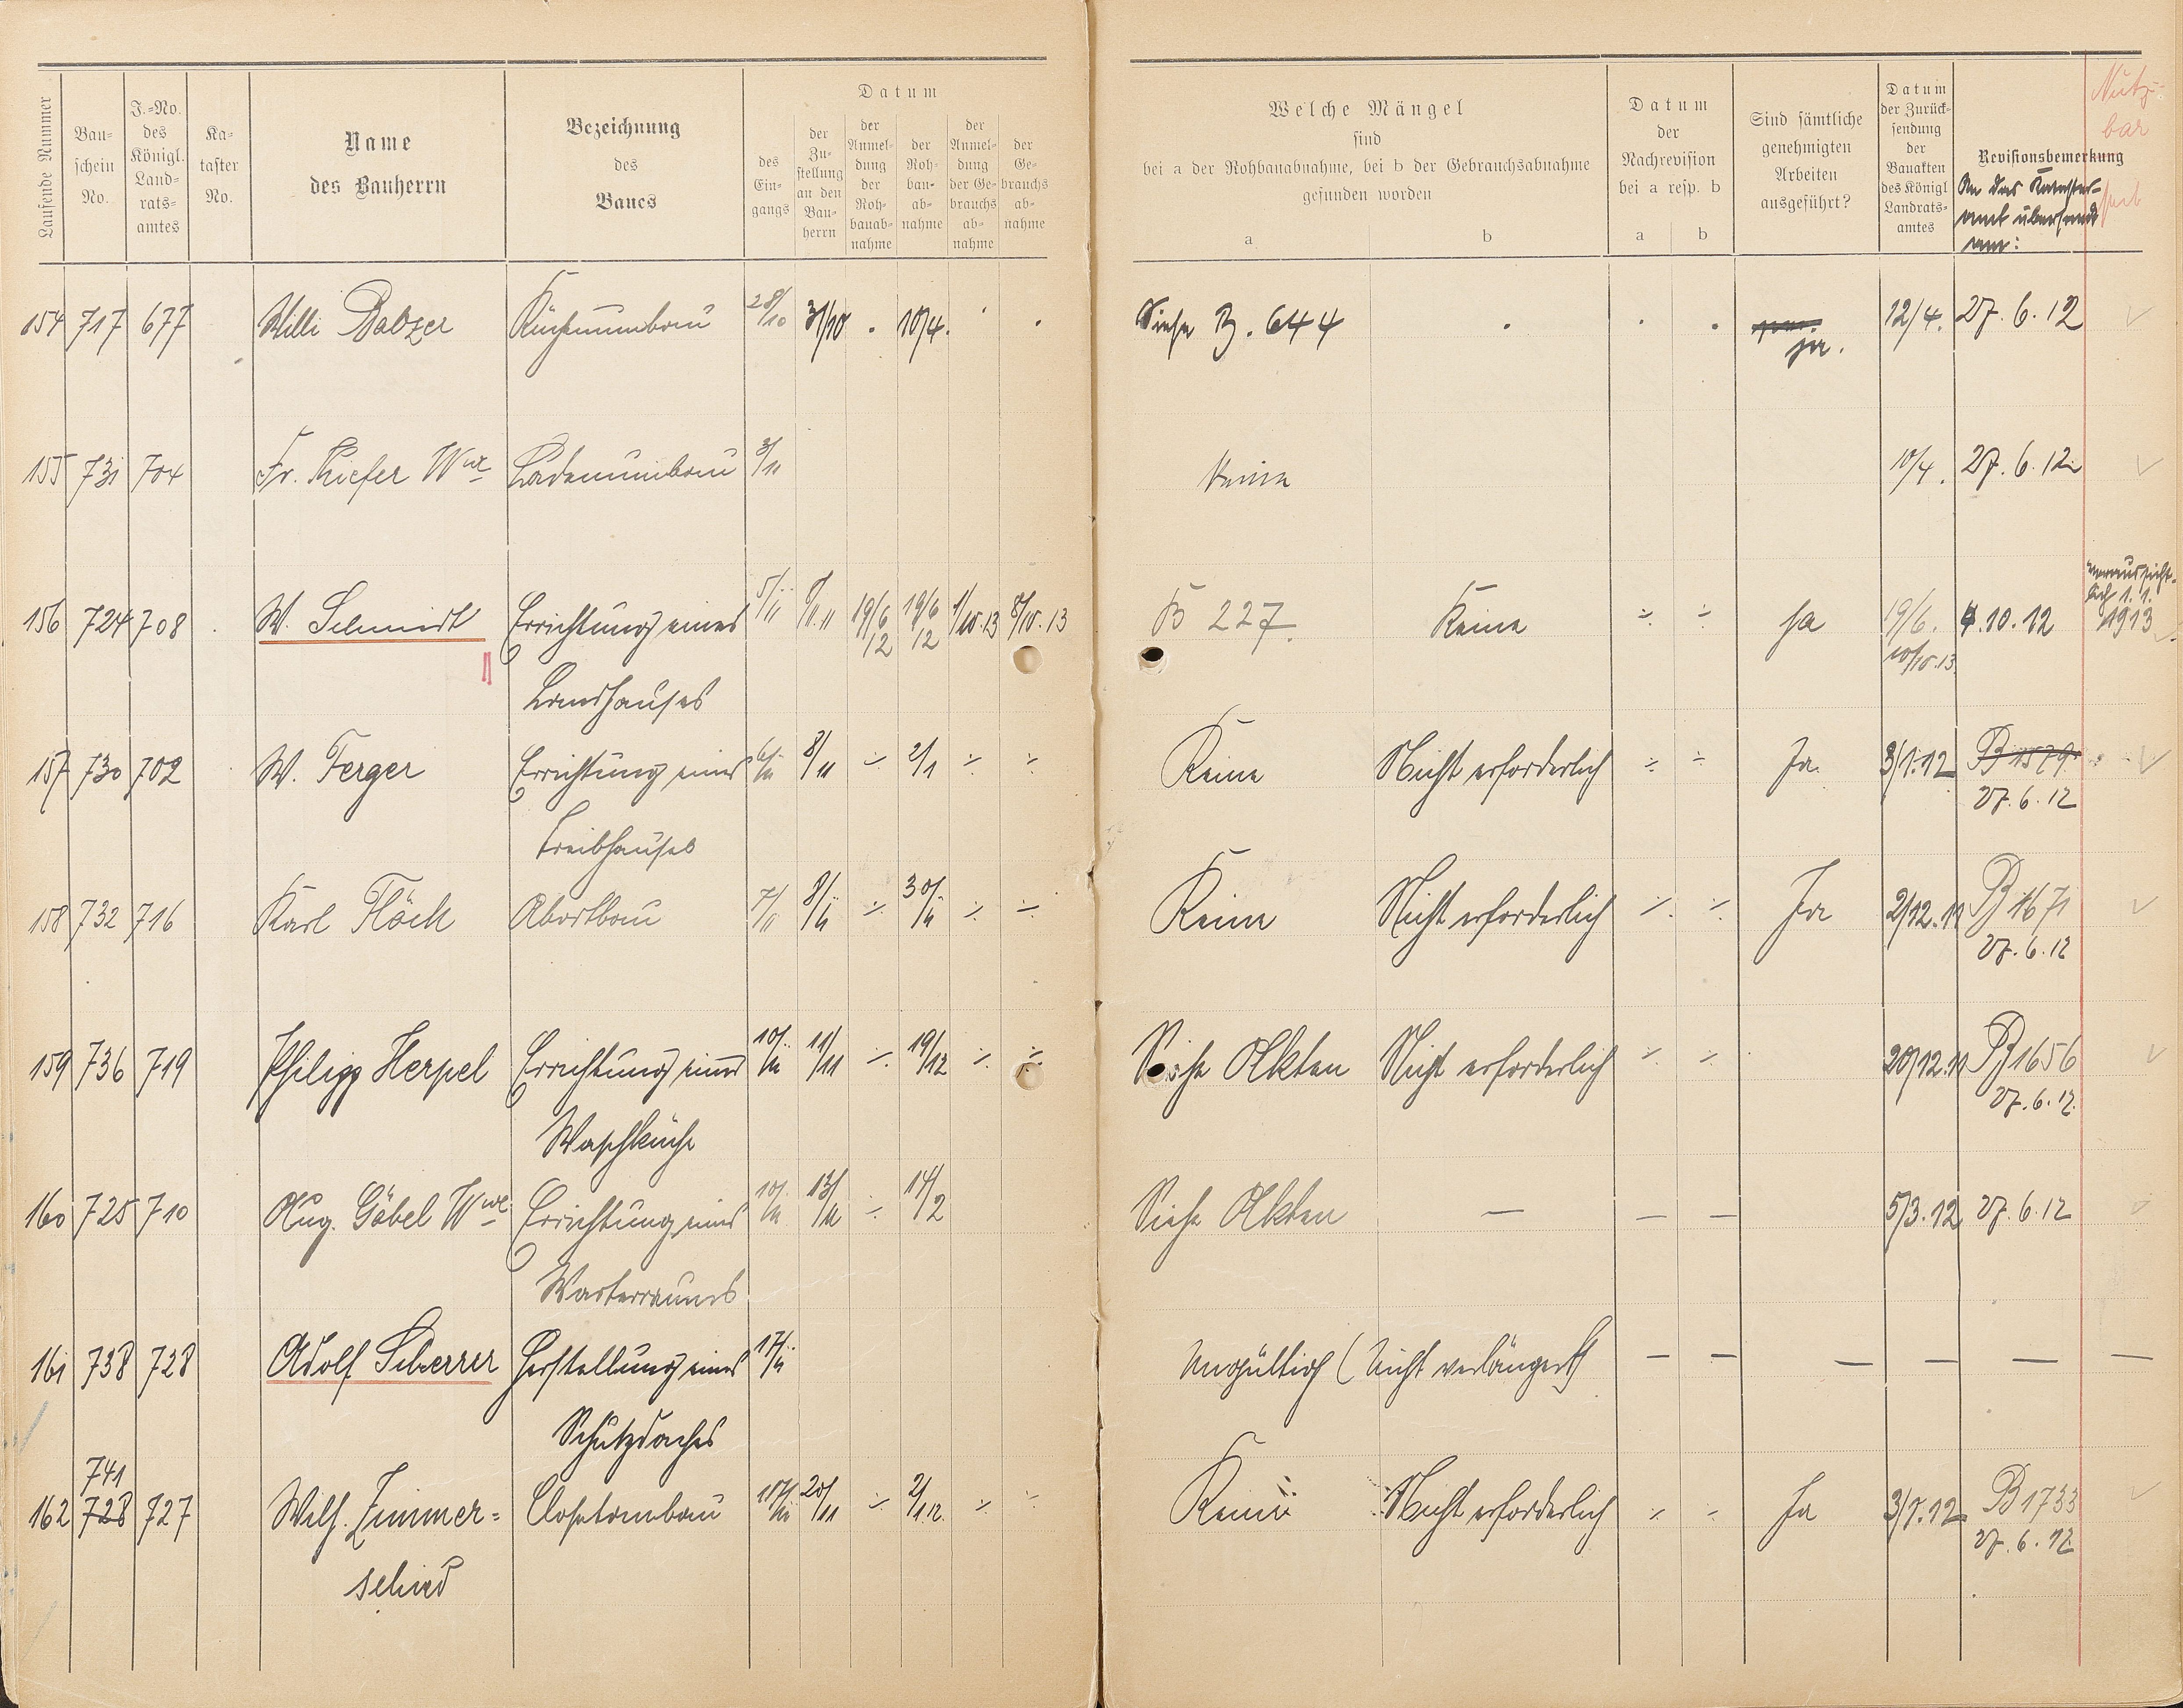 Datum
Laufende Nummer
Bau-
schein
No.
J.-No.
des
Königl.
Land-
rats-
amtes
Ka-
taster
No.
Name
des Bauherrn
Bezeichnung
des
Baues
des
Ein-
gangs
der
Zu-
stellung
an den
Bau-
herrn
der
Anmel-
dung
der
Roh-
bauab-
nahme
der
Roh-
bau-
ab-
nahme
der
Anmel-
dung
der Ge-
brauchs
ab-
nahme
der
Ge-
brauchs
ab-
nahme
Welche Mängel
sind
bei a der Rohbauabnahme, bei b der Gebrauchsabnahme
gefunden worden
a b
Datum
der
Nachrevision
bei a resp. b
a b
Sind sämtliche
genehmigten
Arbeiten
ausgeführt?
Datum
der Zurück-
sendung
der
Bauakten
des Königl
Landrats-
amtes
Revisionsbemerkung
An das Kataster-
amt übersandt
am:
Nutz-
bar
seit
154 717 677 Willi Balzer Küchenumbau 28/10 31/10 . 10/4. . . Siehe B. 644 . . . ja. 12/4. 27. 6. 12
155 731 704 Fr. Kiefer Wwe Ladenumbau 3/11 Keine 10/4. 27. 6. 12
voraussicht-
lich 1. 1.
1913
156 724 708 W. Schmidt Errichtung eines 5/11 9/11.11 19/6 12 19/6 12 1/10.13 8/10.13 B 227. Keine ÷ ÷ Ja 19/6. 4.10.12
10/10.13
Landhauses
157 730 702 W. Ferger Errichtung eines 6/11 8/11 ÷ 2/1 ÷ ÷ Keine Nicht erforderlich ÷ ÷ Ja. 3/1.12 B 1579
27. 6. 12
Treibhauses
158 732 716 Karl Flöck Abortbau 7/11 8/11 ÷ 30/11 ÷ ÷ Keine Nicht erforderlich ÷ ÷ Ja 2/12.11 B 1671
27. 6. 12
159 736 719 Philipp Herpel Errichtung einer 10/11 11/11 ÷ 19/12 ÷ ÷ Siehe Akten Nicht erforderlich ÷ ÷ 20/12.11 B 1656
27. 6. 12.
Waschküche
160 725 710 Aug. Göbel Wwe. Errichtung eines 10/11 13/11 ÷ 14/2 Siehe Akten — — — 5/3.12 27. 6. 12
Warteraumes
161 738 728 Adolf Scherrer Herstellung eines 17/11 Ungültig (Nicht verlängert) — — — — — —
Schutzdaches
741
162 728 727 Wilh. Zimmer- Closetanbau 18/11 20/11 ÷ 2/1.12. ÷ ÷ Keine Nicht erforderlich ÷ ÷ Ja 3/1.12 B 1733
27. 6. 12
schied